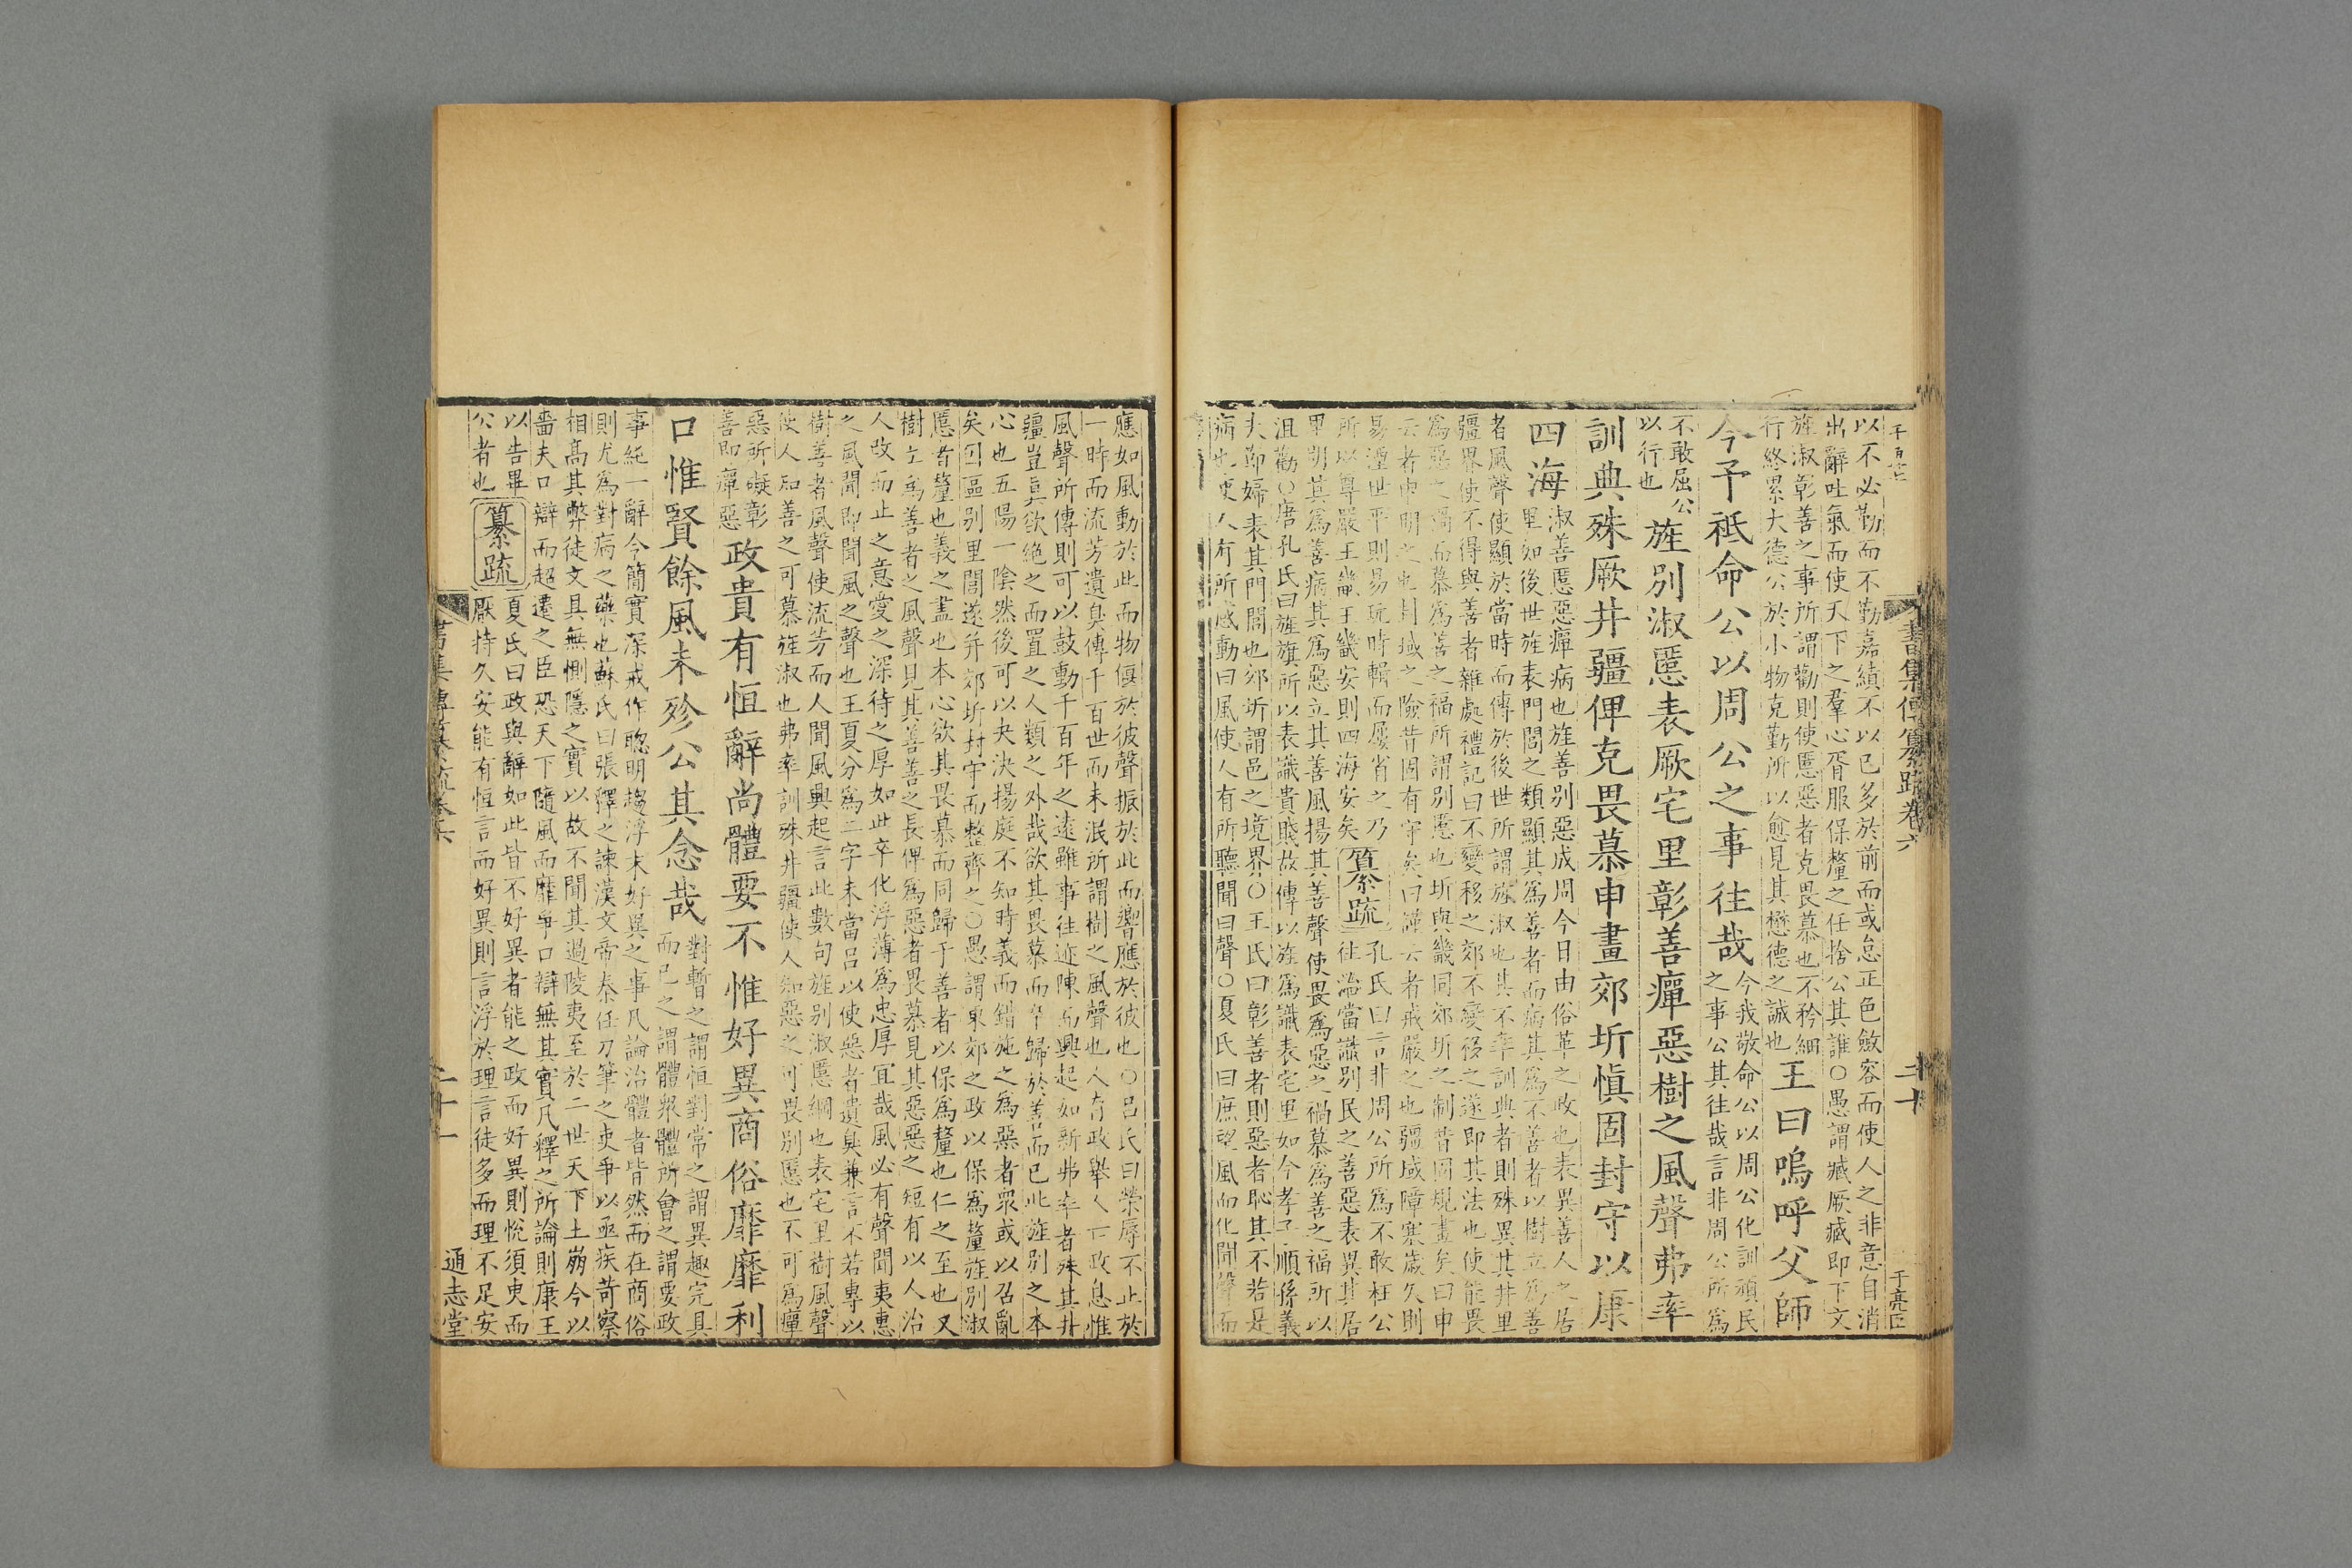 書集傳纂疏卷六
二十
以不必勤而不勤嘉績不以已多於前而或怠正色斂容而使人之非意自消
出辭吐氣而使天下之羣心胥服保釐之任捨公其誰○愚謂臧厥臧即下文
旌淑彰善之事所謂勸則使慝惡者克畏慕也不矜細
行終累大德公於小物克勤所以愈見其懋德之誠也
王曰嗚呼父師
今予祗命公以周公之事往哉
今我敬命公以周公化訓頑民
之事公其往哉言非周公所為
不敢屈公
以行也
旌別淑慝表厥宅里彰善癉惡樹之風聲弗率
訓典殊厥井疆俾克畏慕申畫郊圻愼固封守以康
四海
淑善慝惡癉病也旌善別惡成周今日由俗革之政也表異善人之居
里如後世旌表門閭之類顯其為善者而病其為不善者以樹立為善
者風聲使顯於當時而傳於後世所謂旌淑也其不率訓典者則殊異其井里
疆界使不得與善者雜處禮記曰不變移之郊不變移之遂即其法也使能畏
為惡之禍而慕為善之福所謂別慝也圻與畿同郊圻之制昔固規畫矣曰申
云者申明之也封域之險昔固有守矣曰謹云者戒嚴之也疆域障塞歲久則
易湮世平則易玩時輯而屢省之乃
所以尊嚴王畿王畿安則四海安矣
纂疏
孔氏曰言非周公所為不敢枉公
往治當識別民之善惡表異其居
里明其為善病其為惡立其善風揚其善聲使畏為惡之禍慕為善之福所以
沮勸○唐孔氏曰旌旗所以表識貴賤故傳以旌為識表宅里如今孝子順孫義
夫節婦表其門閭也郊圻謂邑之境界○王氏曰彰善者則惡者恥其不若是
病也使人有所感動曰風使人有所聽聞曰聲○夏氏曰庶望風而化聞聲而
應如風動於此而物偃於彼聲振於此而響應於彼也○呂氏曰榮辱不止於
一時而流芳遺臭傳千百世而未泯所謂樹之風聲也人存政舉人亡政息惟
風聲所傳則可以鼓動千百年之遠雖事往迹陳而興起如新弗率者殊其井
疆豈眞欲絶之而置之人類之外哉欲其畏慕而卒歸於善而已此旌別之本
心也五陽一陰然後可以夬決揚庭不知時義而錯施之為惡者衆或以召亂
矣曰區別里閭遂幷郊圻封守而整齊之○愚謂東郊之政以保為釐旌別淑
慝者釐也義之盡也本心欲其畏慕而同歸于善者以保為釐也仁之至也又
樹立為善者之風聲見其善善之長俾為惡者畏慕見其惡惡之短有以人治
人改而止之意愛之深待之厚如此卒化浮薄為忠厚宜哉風必有聲聞夷惠
之風聞即聞風之聲也王夏分為二字未當呂以使惡者遺臭兼言不若專以
樹善者風聲使流芳而人聞風興起言此數句旌別淑慝綱也表宅里樹風聲
使人知善之可慕旌淑也弗率訓殊井疆使人知惡之可畏別慝也不可為癉
惡所礙彰
善即癉惡
政貴有恒辭尚體要不惟好異商俗靡靡利
口惟賢餘風未殄公其念哉
對暫之謂恒對常之謂異趣完具
而已之謂體衆體所會之謂要政
事純一辭令簡實深戒作聰明趨浮末好異之事凡論治體者皆然而在商俗
則尤為對病之藥也蘇氏曰張釋之諫漢文帝秦任刀筆之吏爭以亟疾苛察
相高其弊徒文具無惻隱之實以故不聞其過陵夷至於二世天下土崩今以
嗇夫口辯而超遷之臣恐天下隨風而靡爭口辯無其實凡釋之所論則康王
以告畢
公者也
纂疏
夏氏曰政與辭如此皆不好異者能之政而好異則悅須臾而
厭持久安能有恒言而好異則言浮於理言徒多而理不足安
書集傳纂疏卷六
二十一
通志堂